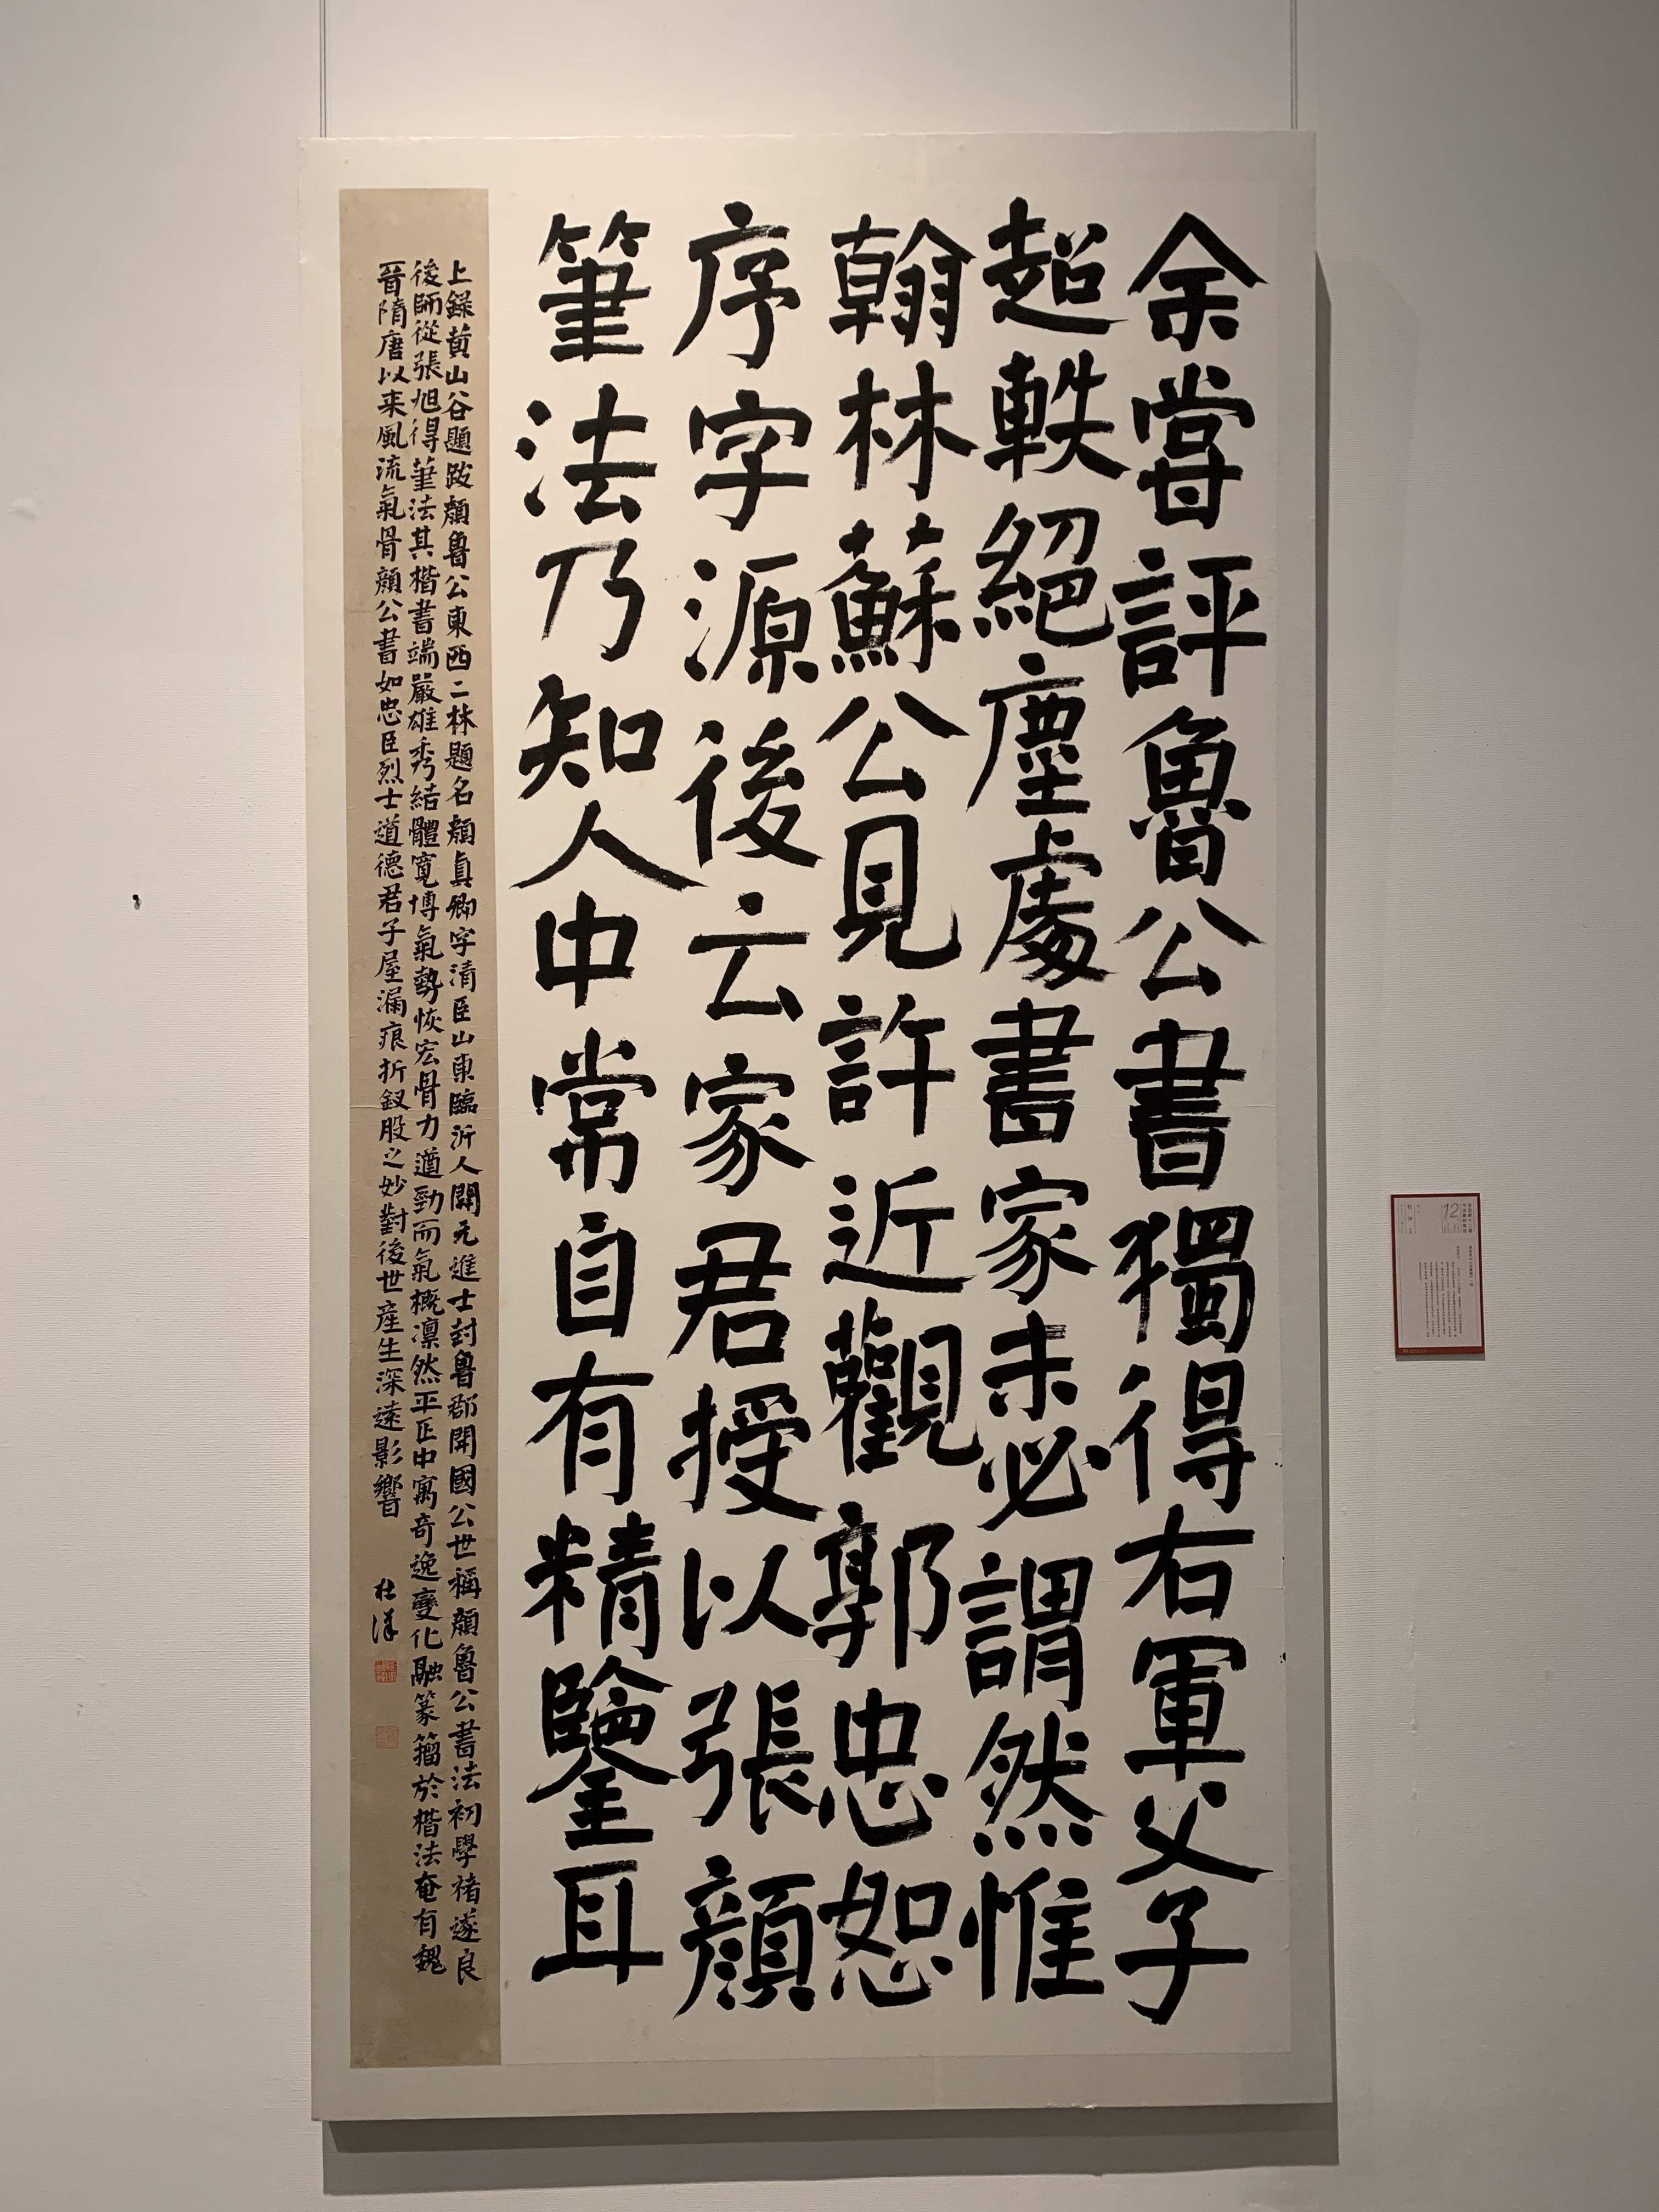 余嘗評魯公書獨得右軍父子
超軼絕塵處書家未必謂然惟
翰林蘇公見許近觀郭忠恕
序字源後云家君授以張顏
筆法乃知人中常自有精鑒耳
上錄黄山谷題跋顏魯公東西二林題名顏真卿字清臣山東臨沂人開元進士封魯郡開國公世稱顏魯公書法初學褚遂良
後師從張旭得筆法其楷書端嚴雄秀結體寬博氣勢恢宏骨力遒勁而氣概凛然平正中寓奇逸變化融篆籀於楷法奄有魏
晉隋唐以来風流氣骨顏公書如忠臣烈士道德君子屋漏痕折釵股之妙對後世産生深遠影響
12